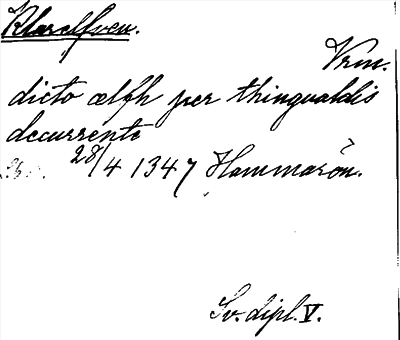 Klarelfven.
Vrm.
dicto ælfh per thingualdis
decurrente
28/4 1347 Hammarön.
Sv. dipl. V.